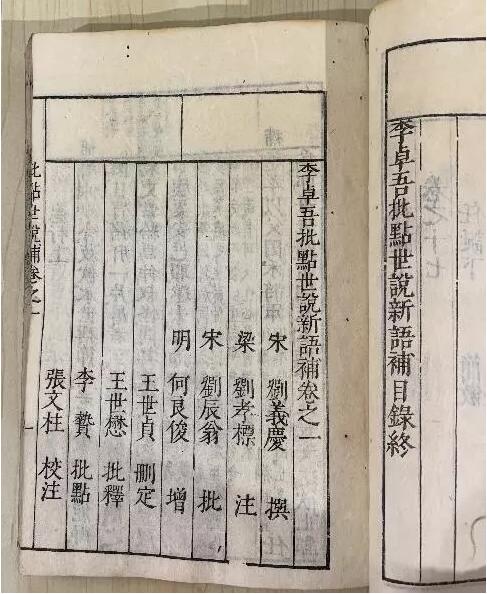 李卓吾批點世說新語補目錄終
李卓吾批點世說新語補卷之一
宋 劉義慶 撰
梁 劉孝標 注
宋 劉辰翁 批
明 何良俊 增
王世貞 刪定
王世懋 批釋
李贄 批點
張文柱 校注
批點世說補卷之一
一